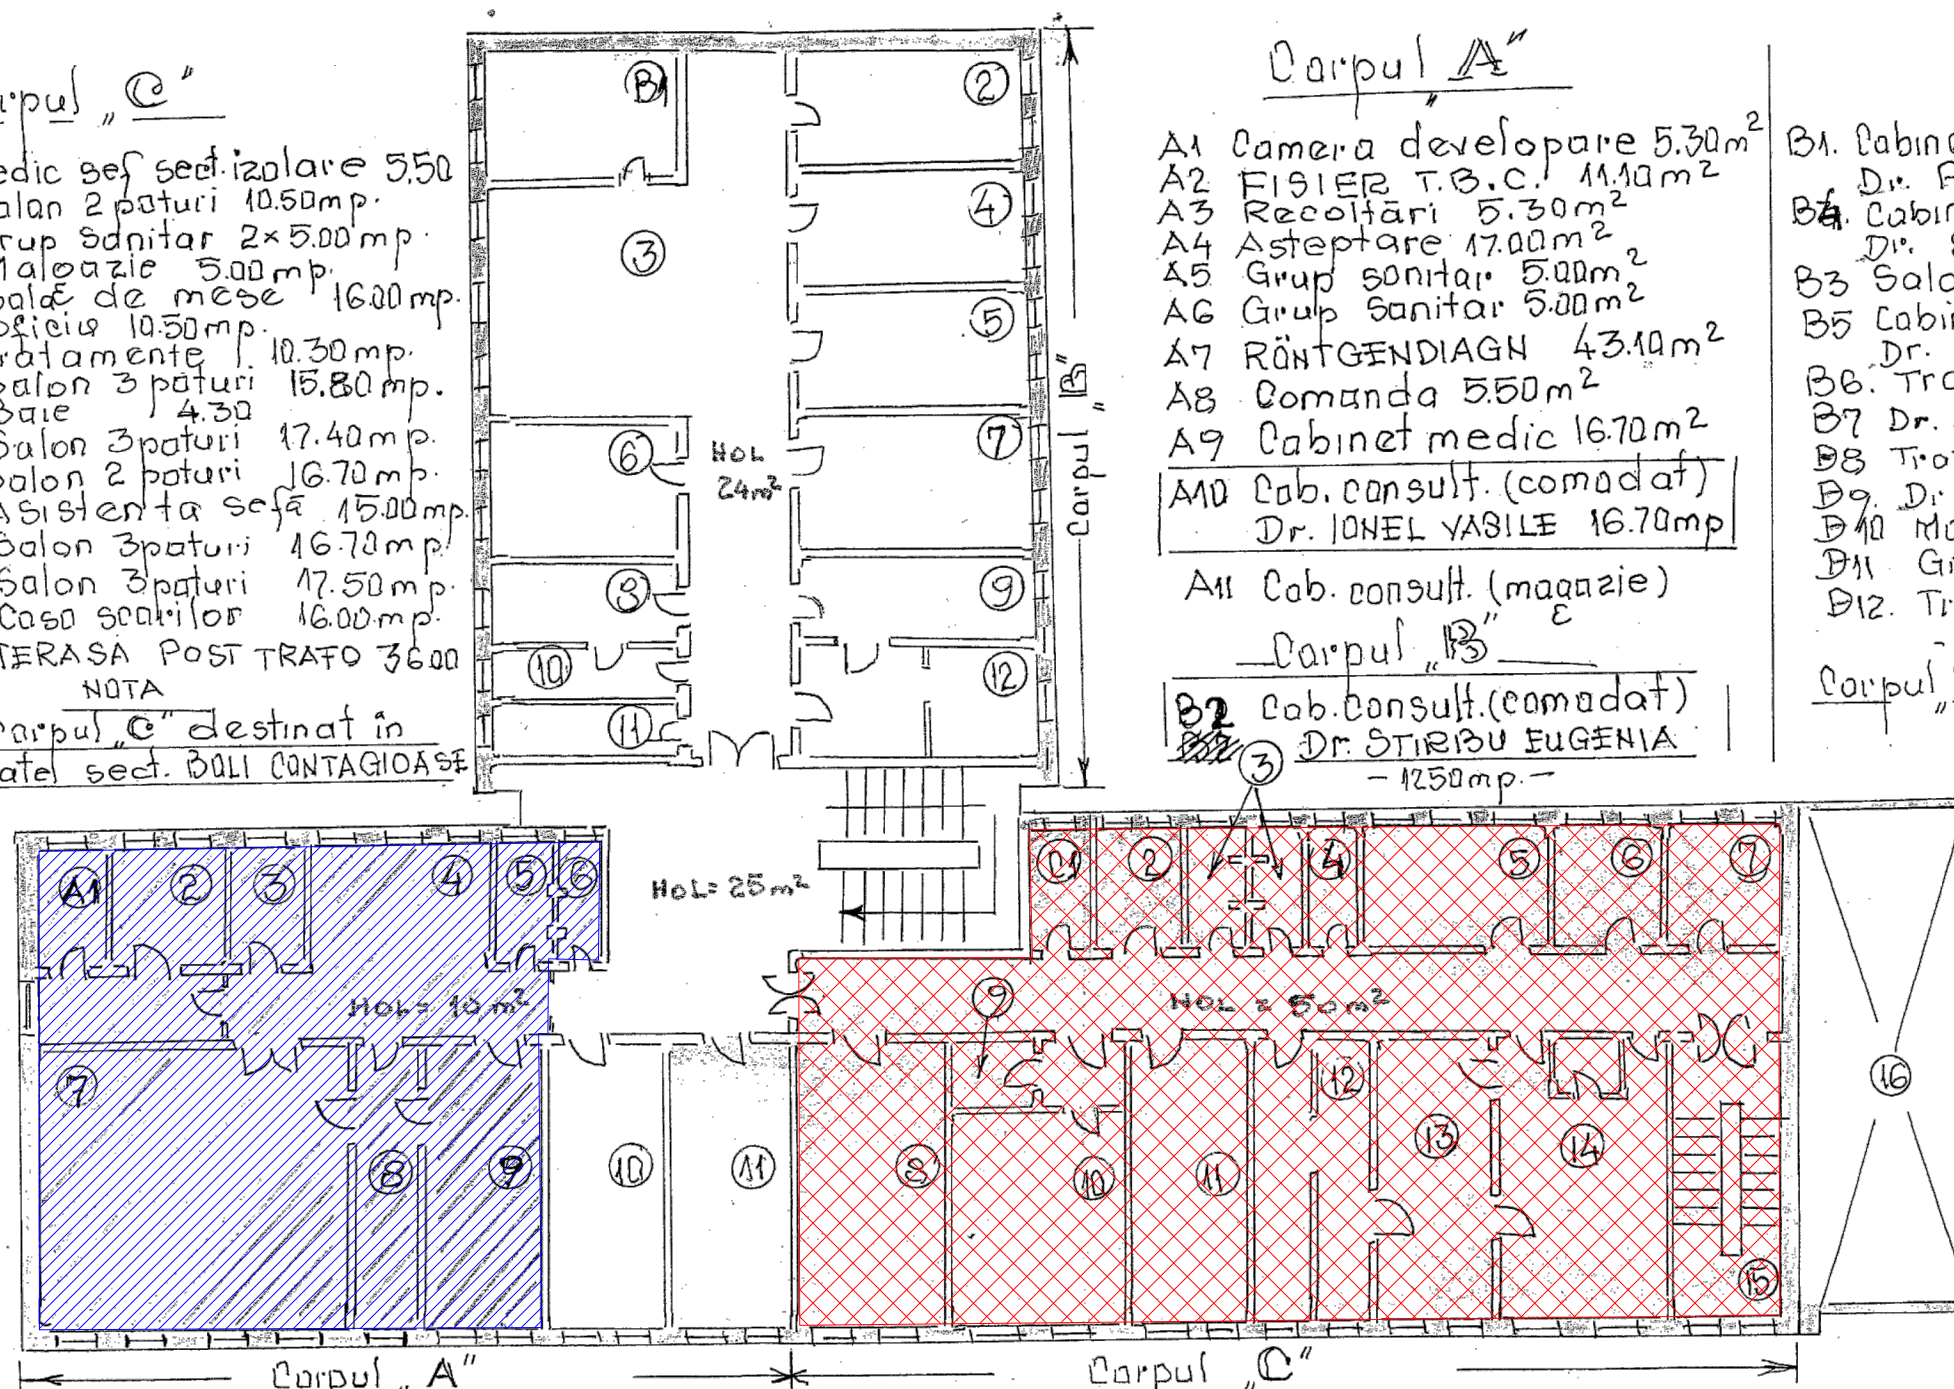 Corpul „C"
medic șef sect. izolare 5,50
Salon 2 paturi 10.50mp.
Grup Sanitar 2×5.00mp.
5.00mp.
de mese 16.00mp.
Oficiu 10.50mp.
Tratamente 10.30mp.
Salon 3 paturi 15.80mp.
Baie 4.30
Salon 3paturi 17.40mp.
Salon 2 paturi 16.70mp.
Asistenta sefă 15.00mp.
Salon 3paturi 16.70mp.
Salon 3paturi 17.50mp.
Casa scarilor 16.00mp.
TERASA POST TRAFO 36.00
NOTA
Corpul „C" destinat în
sect. BOLI CONTAGIOASE
B1
2
3
4
5
6
7
8
9
10
11
12
HOL
24m²
Corpul „B"
Corpul „A"
A1 Camera developare 5.30m²
A2 FISIER T.B.C. 11.10m²
A3 Recoltări 5.30m²
A4 Asteptare 17.00m²
A5 Grup sanitar 5.00m²
A6 Grup Sanitar 5.00m²
A7 RÖNTGENDIAGN 43.10m²
A8 Comanda 5.50m²
A9 Cabinet medic 16.70m²
A10 Cab. consult. (comodat)
Dr. IONEL VASILE 16.70mp
A11 Cab. consult. (magazie)
Corpul „B"
B2 Cab. Consult. (comodat)
Dr. STIRBU EUGENIA
- 1250mp. -
B1.
Dr.
Dr.
B3
B5
Dr.
B6.
B7 Dr.
B8
B9. Dr
B10
B11
B12.
Corpul „
A1
2
3
4
5
6
HOL = 10m²
7
8
9
10
11
HOL= 25m²
3
C1
2
4
5
6
7
9
HOL = 50m²
8
10
11
12
13
14
15
16
Corpul „A"
Corpul „C"